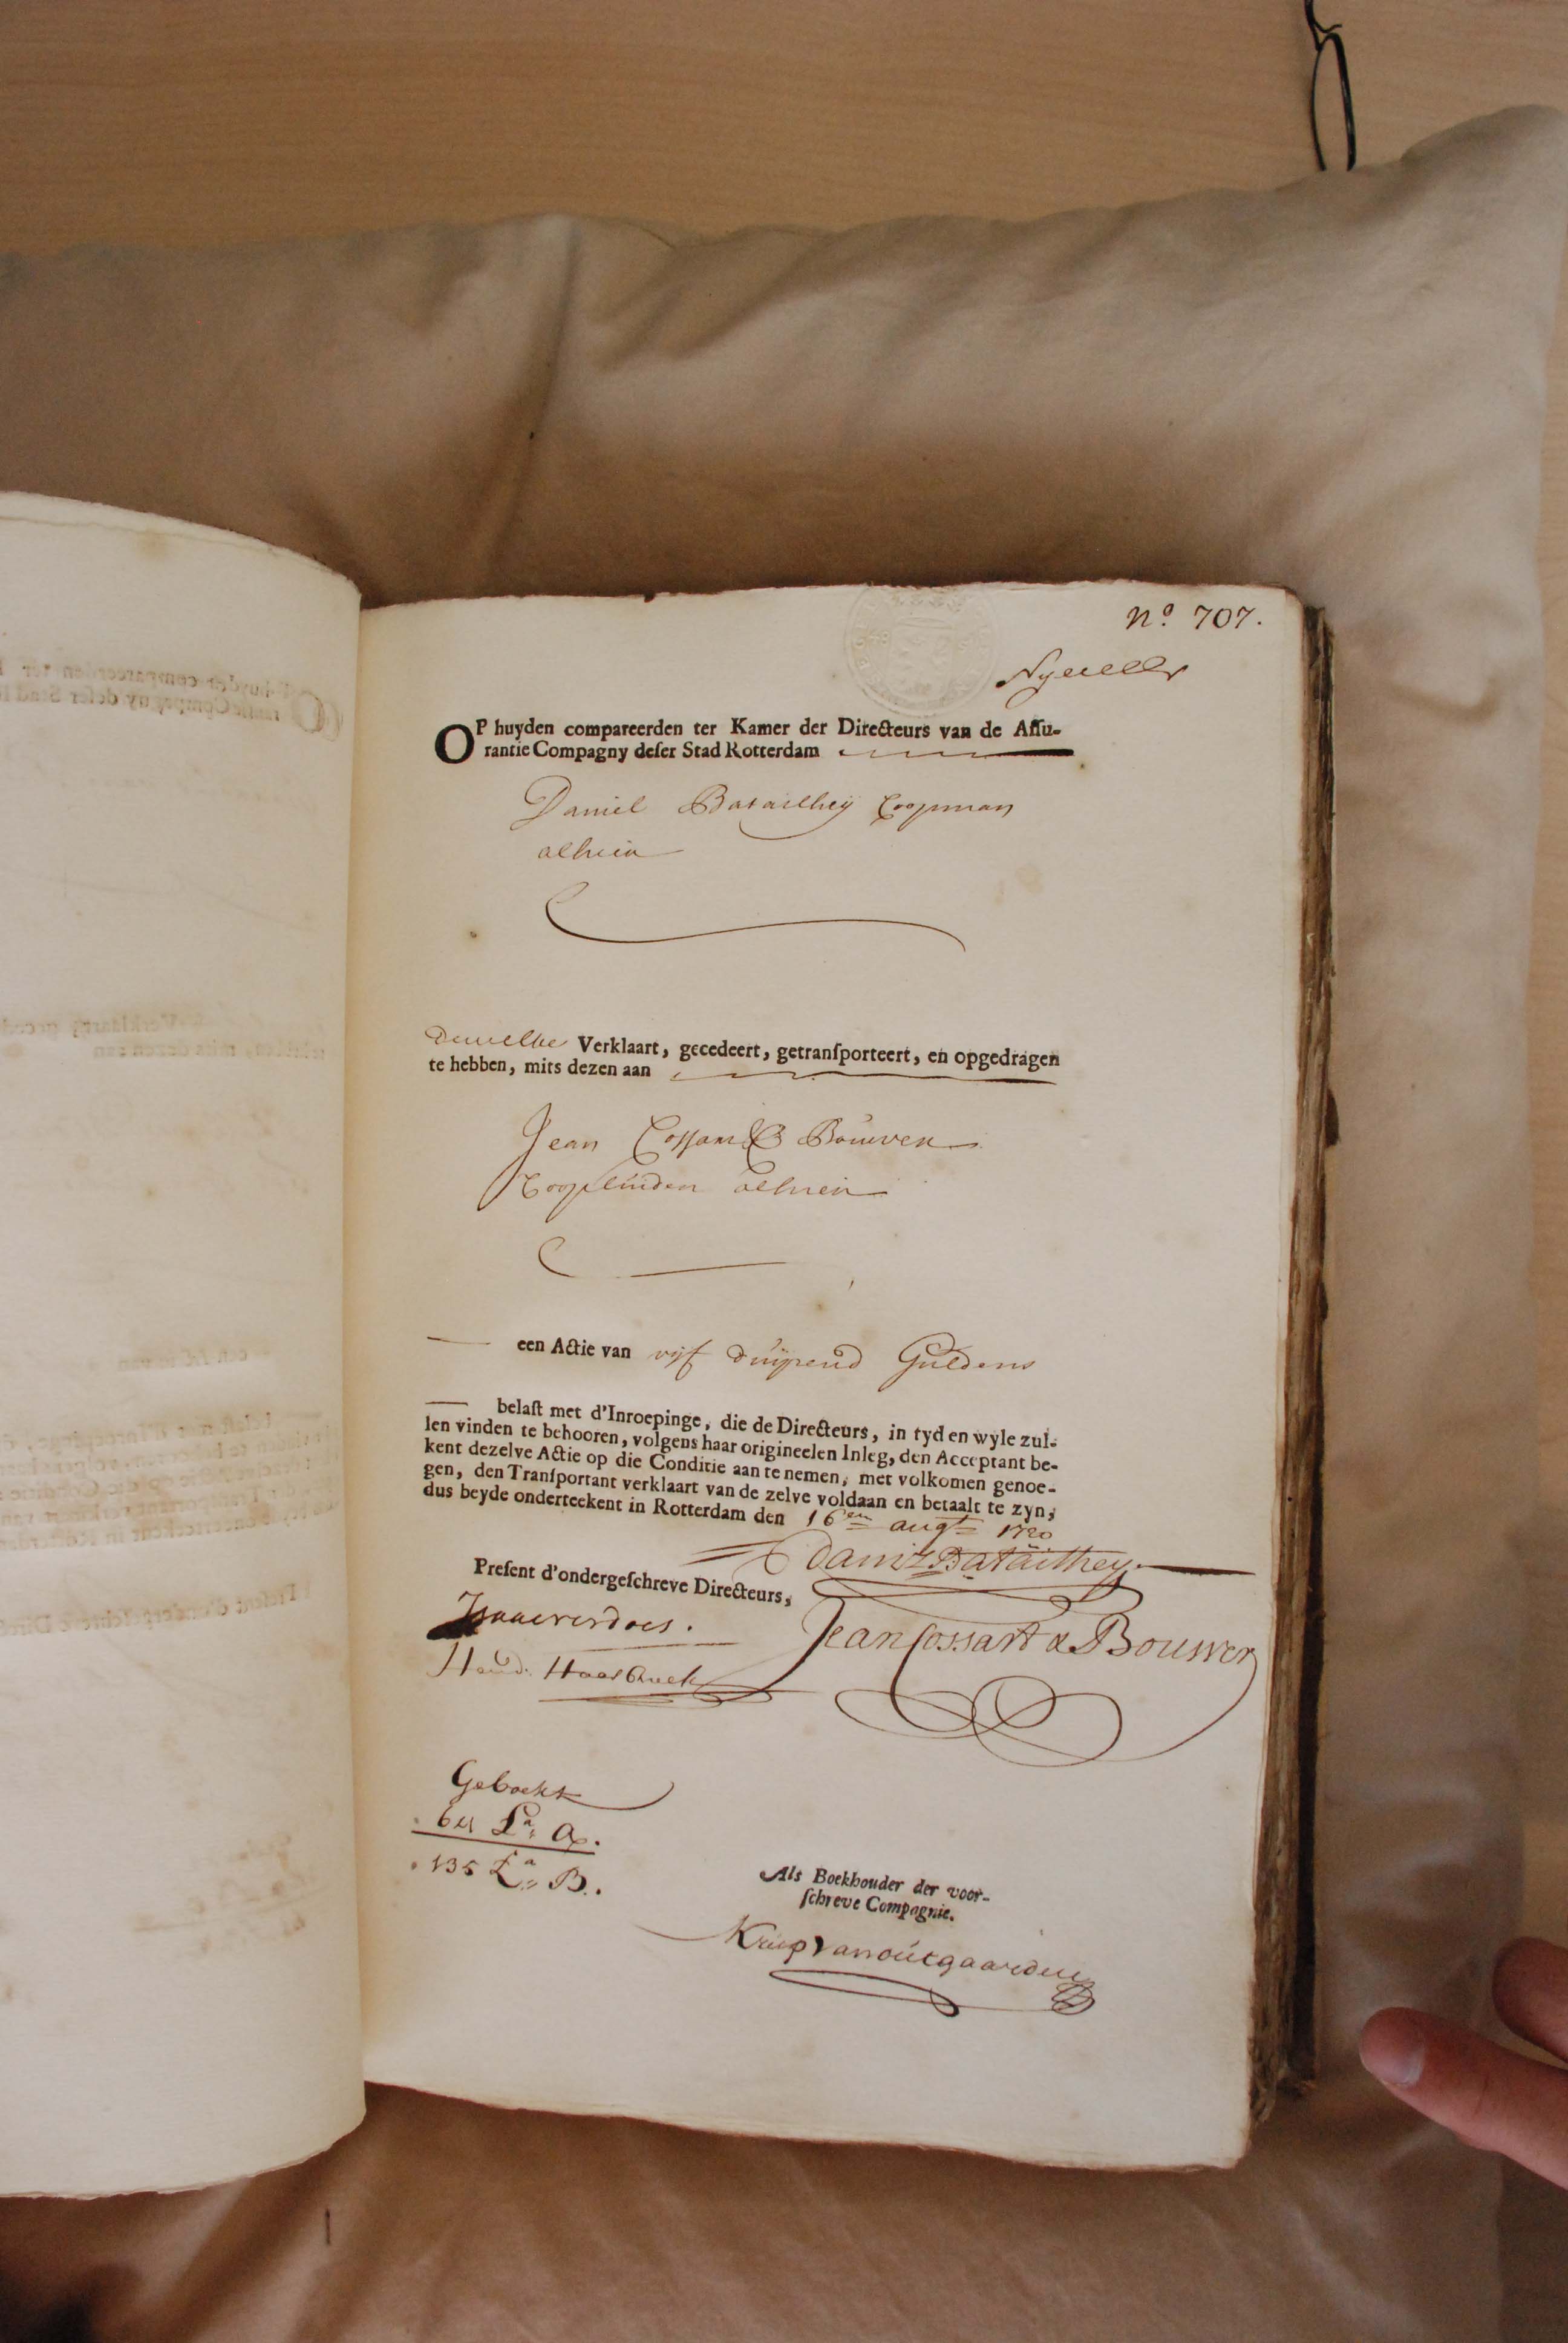 No. 707.
OP huyden compareerden ter Kamer der Directeurs van de Assu-
rantie Compagny deser Stad Rotterdam
Daniel Batailhey Coopman
alhier
Dewelke Verklaart, gecedeert, getransporteert, en opgedragen
te hebben, mits dezen aan
Jean Cossart & Bouwer
Coopluiden alhier
een Actie van vijf duijsend Guldens
belast met d'Inroepinge, die de Directeurs, in tyd en wyle zul-
len vinden te behooren, volgens haar origineelen Inleg, den Acceptant be-
kent dezelve Actie op die Conditie aan te nemen, met volkomen genoe-
gen, den Transportant verklaart van de zelve voldaan en betaalt te zyn,
dus beyde onderteekent in Rotterdam den 16en augt 1720
Daniel Batailhey
Present d'ondergeschreve Directeurs,
Isaac verdoes.
Jean Cossart & Bouwer
Hend. Haesbaek
Geboekt
La A.
135 La B.
Als Boekhouder der voor-
schreve Compagnie.
Kruijs van outgaarden